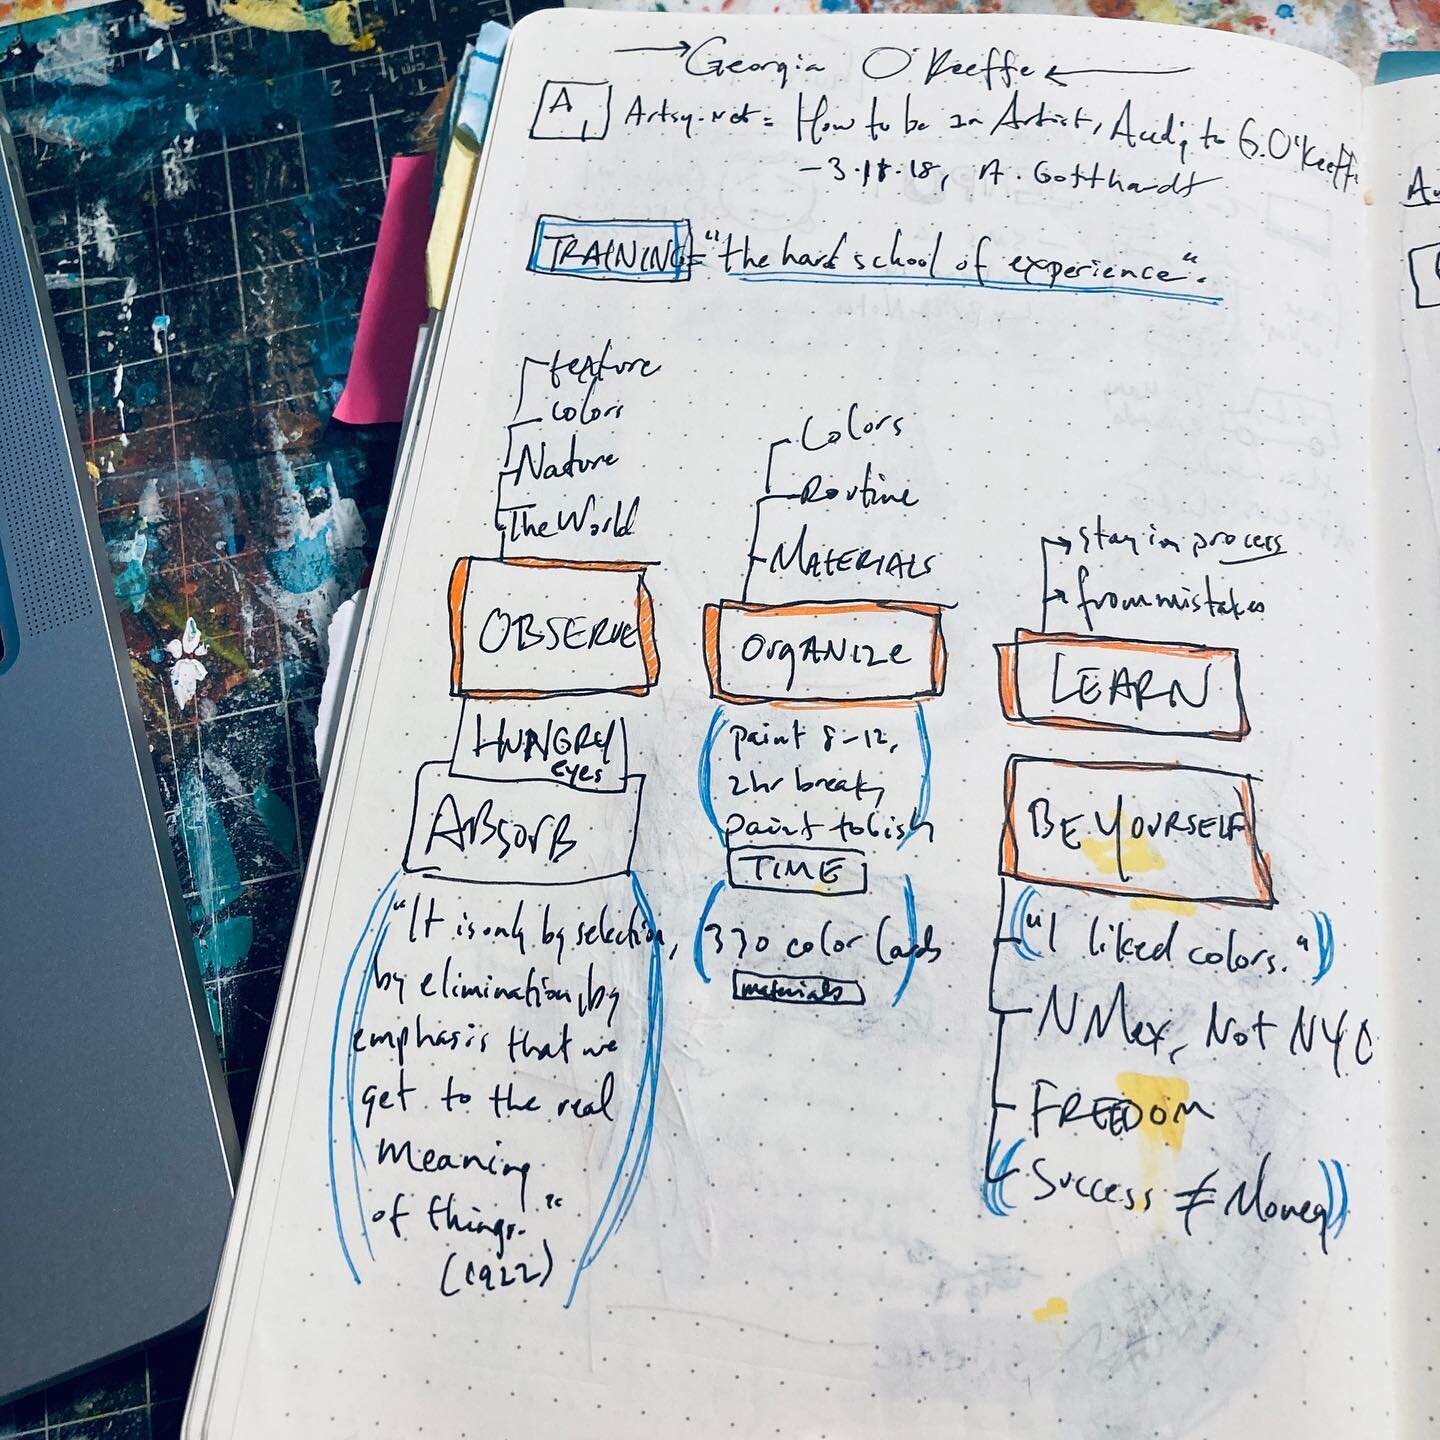 → Georgia O'Keeffe ←
A1
Artsy.net = How to be an Artist, Accdg to G.O'Keeffe
- 3.18.18, A. Gotthardt
TRAINING = "the hard school of experience".
texture
colors
Nature
The World
OBSERVE
HUNGRY
eyes
ABSORB
"It is only by selection,
by elimination, by
emphasis that we
get to the real
meaning
of things."
(1922)
Colors
Routine
MATERIALS
OrgANIZE
paint 8-12,
2hr break,
paint to 6ish
TIME
330 color cards
materials
→ stay in process
→ from mistakes
LEARN
BE YOURSELF
"I liked colors."
NMex, Not NYC
FREEDOM
Success ≠ Money